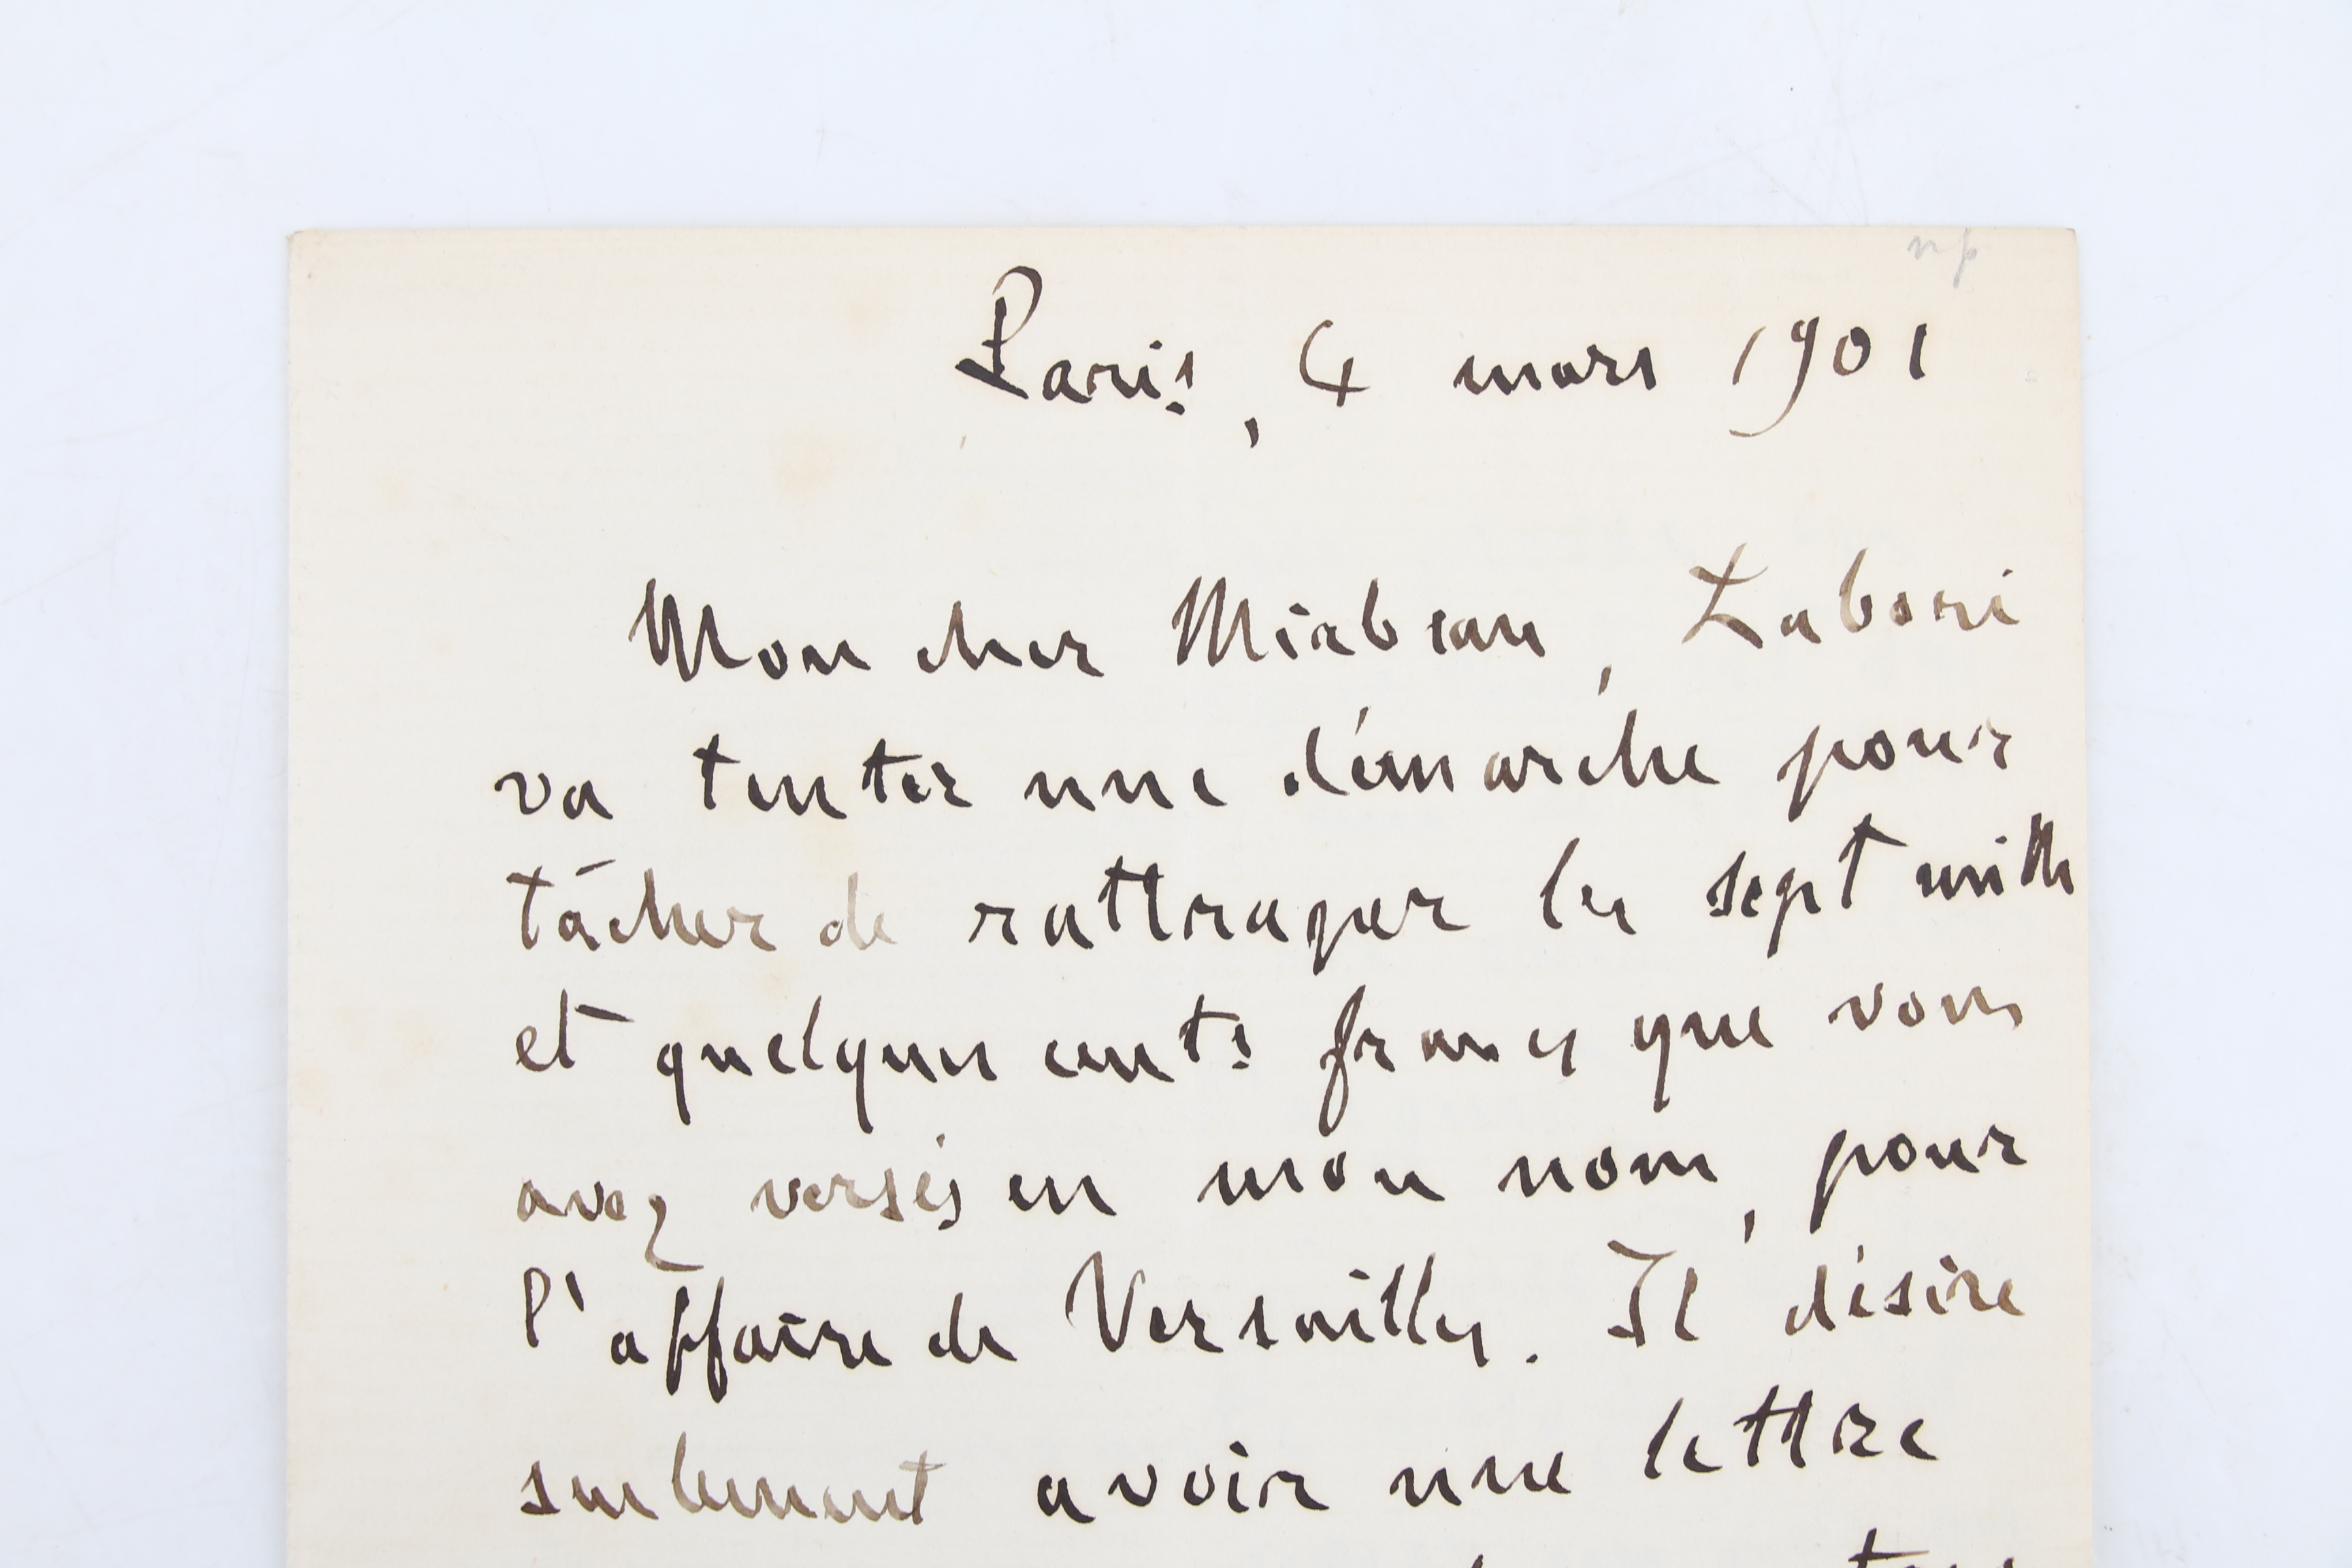 np
Paris, 4 mars 1901
Mon cher Mirbeau, Labori
va tenter une démarche pour
tâcher de rattraper les sept mille
et quelques cents francs que vous
avez versés en mon nom, pour
l'affaire de Versailles. Il désire
seulement avoir une lettre